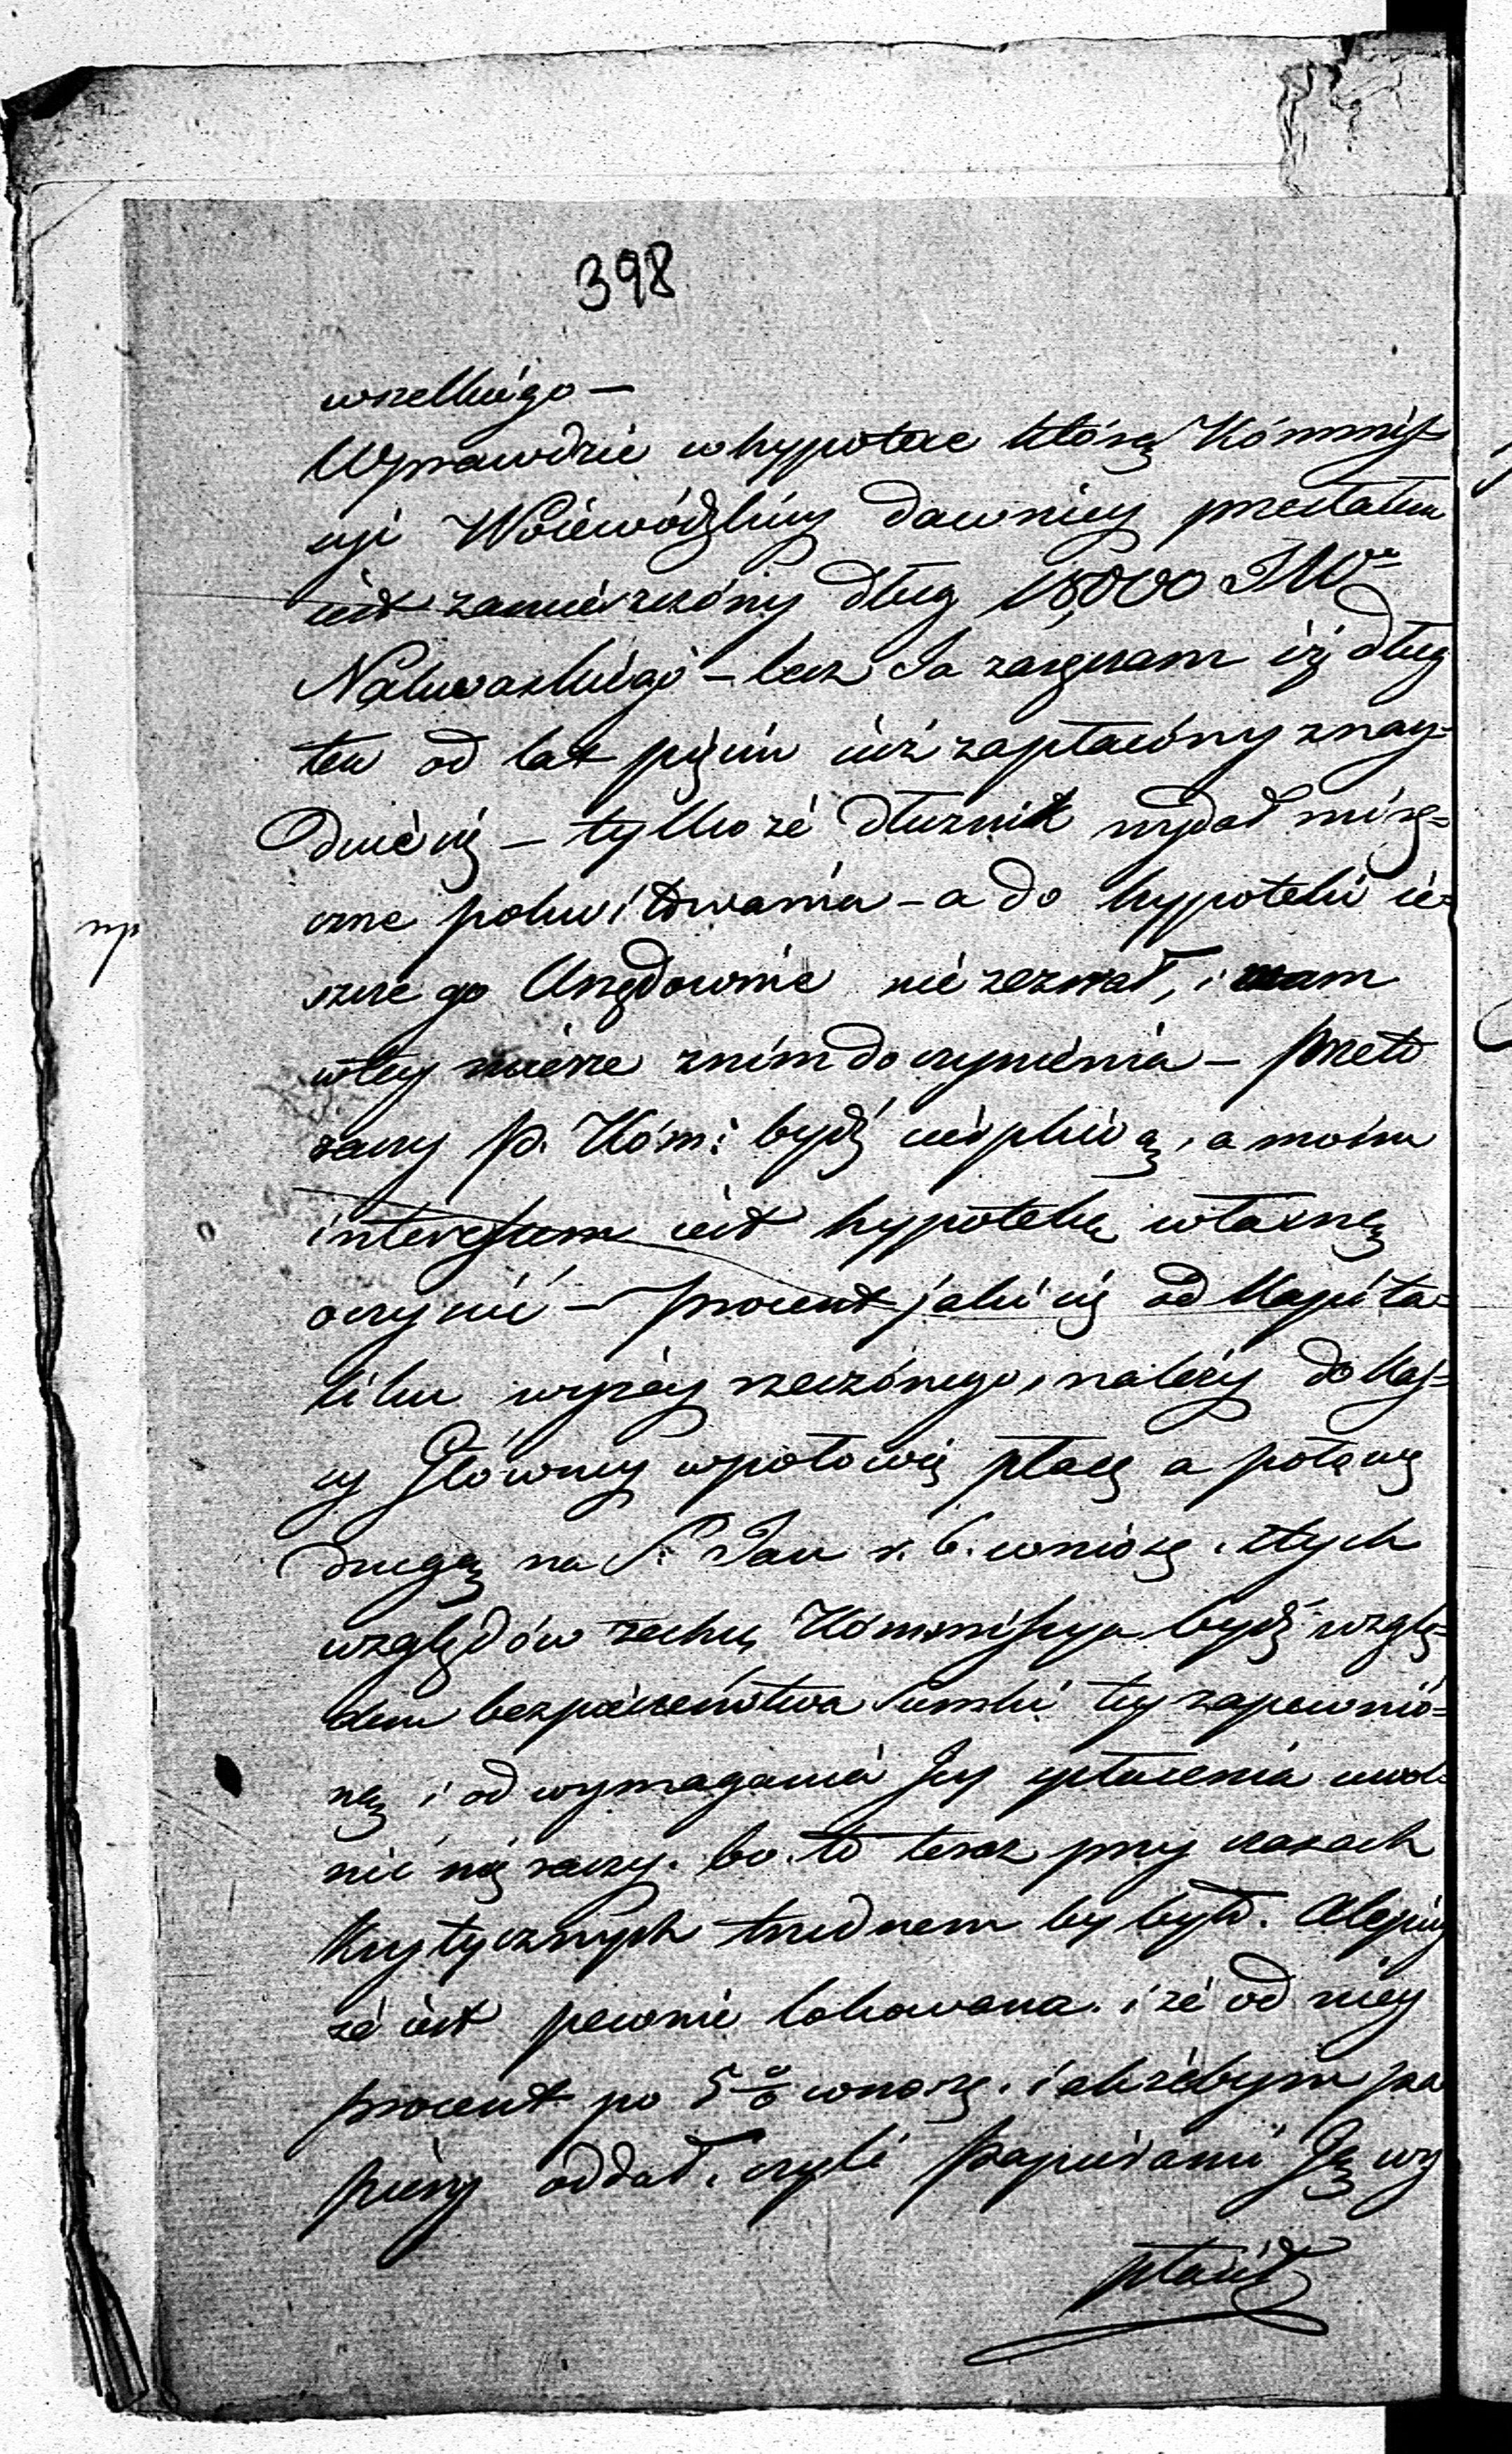 398
wszelkiego —
Wprawdzie w hypotece którą Kómmiss
syi Woiewódzkiey dawniey przesłałem
iest zamieszczóny dług 18,000 JWo
Nakwaskiego — lecz Ja zaręczam iż dług
ten od lat pięciu iuż zapłacóny znay=
duie się — tylko że dłużnik wydał mi ręc=
czne pokwitowania — a do hypoteki ie=
szcze go Urzędownie nie zeznał, i mam
w tey mierze z nim do czynienia — Przeto
raczy P. Kóm: bydź cierpliwą, a moim
interessem iest hypotekę własną
oczyścić — Procent jaki się od Kapita=
liku wyżey rzeczónego, należy do Kas=
sy Główney w połowie płacę a połowę
drugą na S. Jan r. b. wniosę. Z tych
względów zechce Kómmissya bydź wzglę=
dem bezpieczeństwa Summki tey zapewnió=
ną i od wymagania Jey spłacenia uwol=
nić mię raczy. bo to teraz przy czasach
krytycznych trudnem by było. A lepiey
że iest pewnie lokowana. i że od niey
procent po 5 % wnoszę. i akbym pa
piery oddał, czyli papierami Ją wy
płacił